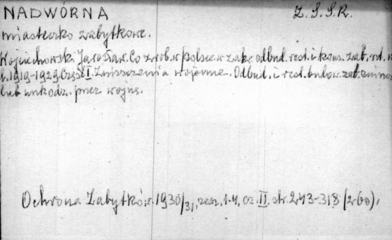 NADWÓRNA Z.S.S.R.
miasteczko zabytkowe.
Wojciechowski Jarosław. Co zrob. w Polsce w zakr. odbud. rest. i kons. zab.
1919-1929 Część II. Zniszczenia wojenne. Odbud. i rest. budow. zab. zniszcz.
lub uszkodz. przez wojnę.
Ochrona Zabytków. 1930/31, zesz. 1-4, cz. II. str. 243-318 (260).